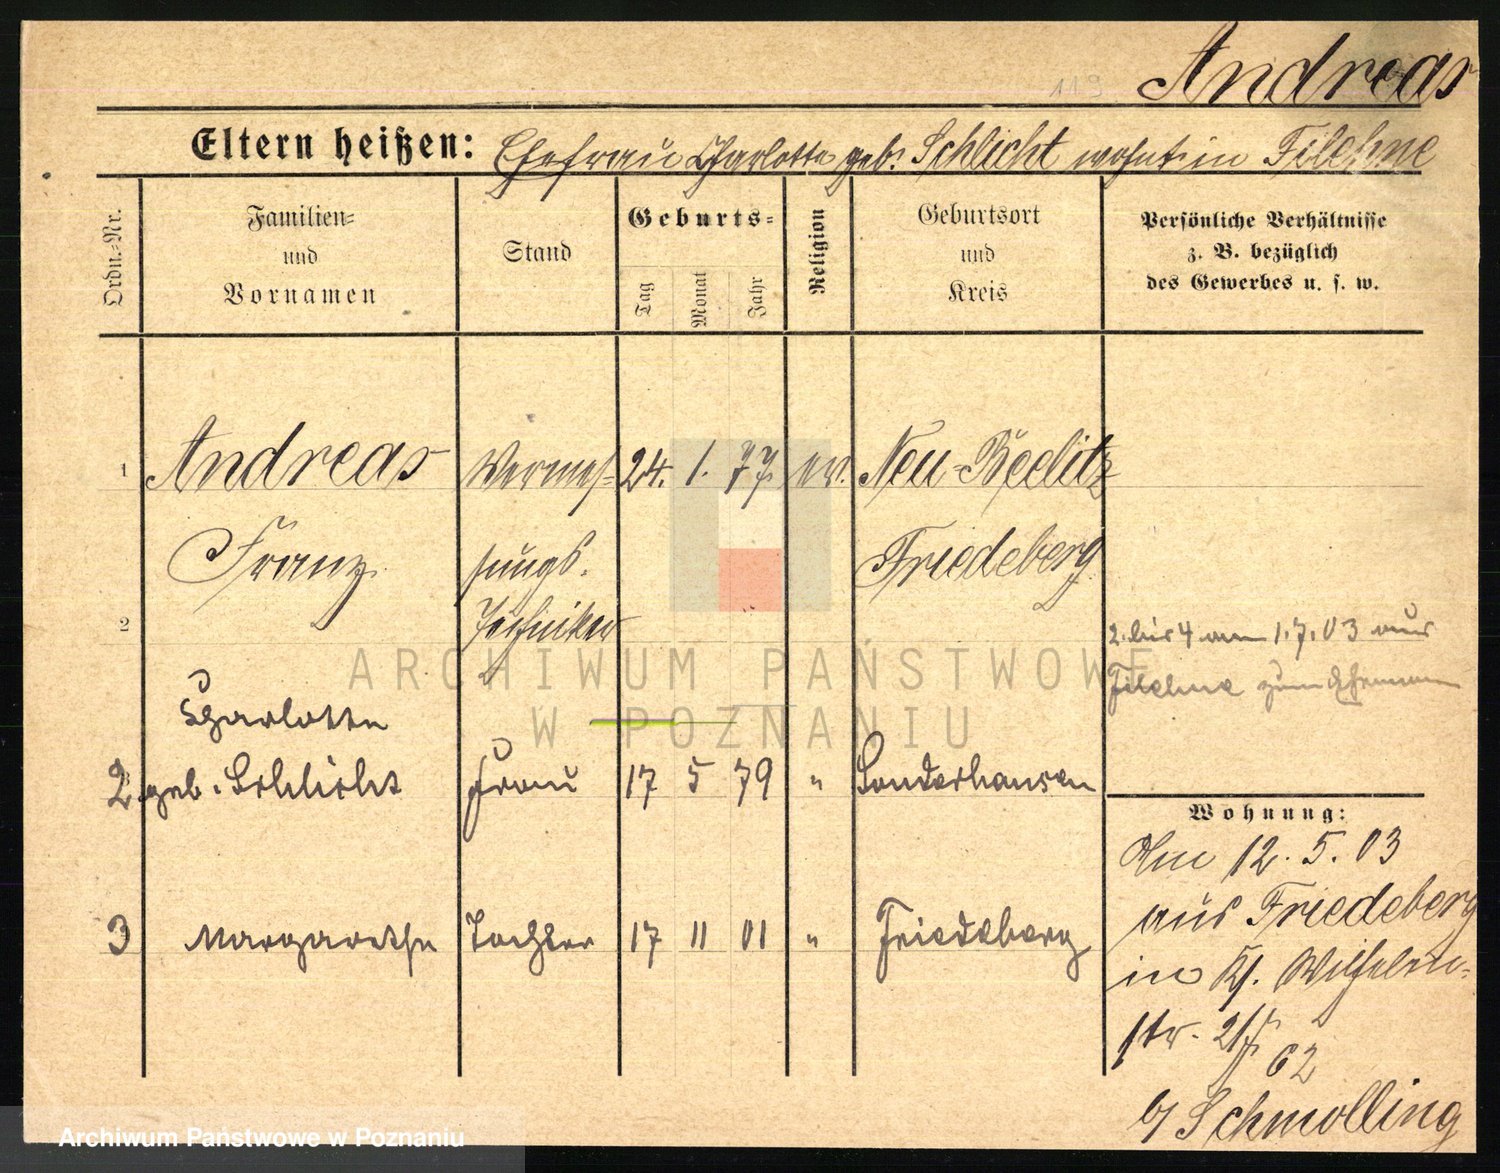 119
Andreas
Eltern heißen: Ehefrau Charlotte geb. Schlicht wohnt in Filehne
Ordn.-Nr.
Familien-
und
Vornamen
Stand
Geburts-
Tag
Monat
Jahr
Religion
Geburtsort
und
Kreis
Persönliche Verhältnisse
z. B. bezüglich
des Gewerbes u. s. w.
1 Andreas Vermes- 24. 1. 77. ev. Neu-Beelitz
Franz sungs. Friedeberg
2 Techniker
2. bis 4 am 1.7.03 aus
Filehne zum Ehemann
Charlotte
2 geb. Schlicht Frau 17 5 79 " Sonderhausen
3 Margarethe Tochter 17 11 01 " Friedeberg
Wohnung:
Am 12. 5. 03
aus Friedeberg
in Wilhelm-
str. 62
b/ Schmolling
ARCHIWUM PAŃSTWOWE
W POZNANIU
Archiwum Państwowe w Poznaniu